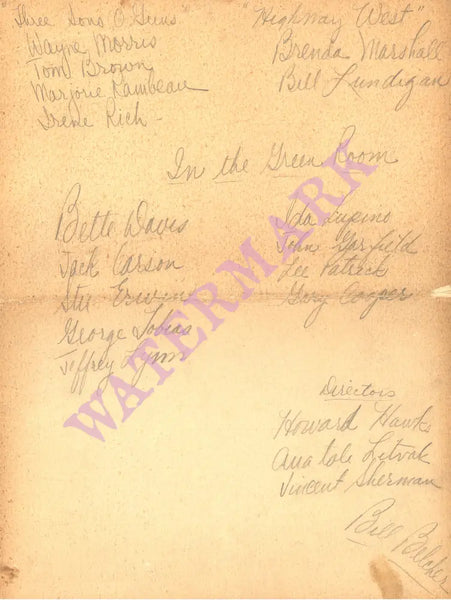 "Three Sons O' Guns"
Wayne Morris
Tom Brown
Marjorie Rambeau
Irene Rich -
"Highway West"
Brenda Marshall
Bill Lundigan
In the Green Room
Bette Davis
Jack Carson
Stu Erwin
George Tobias
Jeffrey Lynn
Ida Lupino
John Garfield
Lee Patrick
Gary Cooper
Directors
Howard Hawks
Anatole Litvak
Vincent Sherman
Bill Belcher
WATERMARK